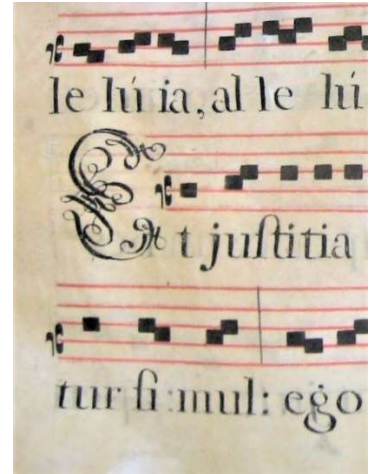 le lú ia, al le lú
Et juſtitia
tur ſi:mul: ego